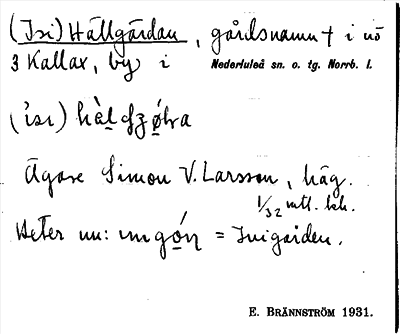 (Isi) Hällgärdan, gårdsnamn † i nö
3 Kallax, by i Nederluleå sn. o. tg. Norrb. l.
(isi)
Ägare Simon V. Larsson, häg.
1/32 mtl.
Heter nu: = Inigården.
E. BRÄNNSTRÖM 1931.